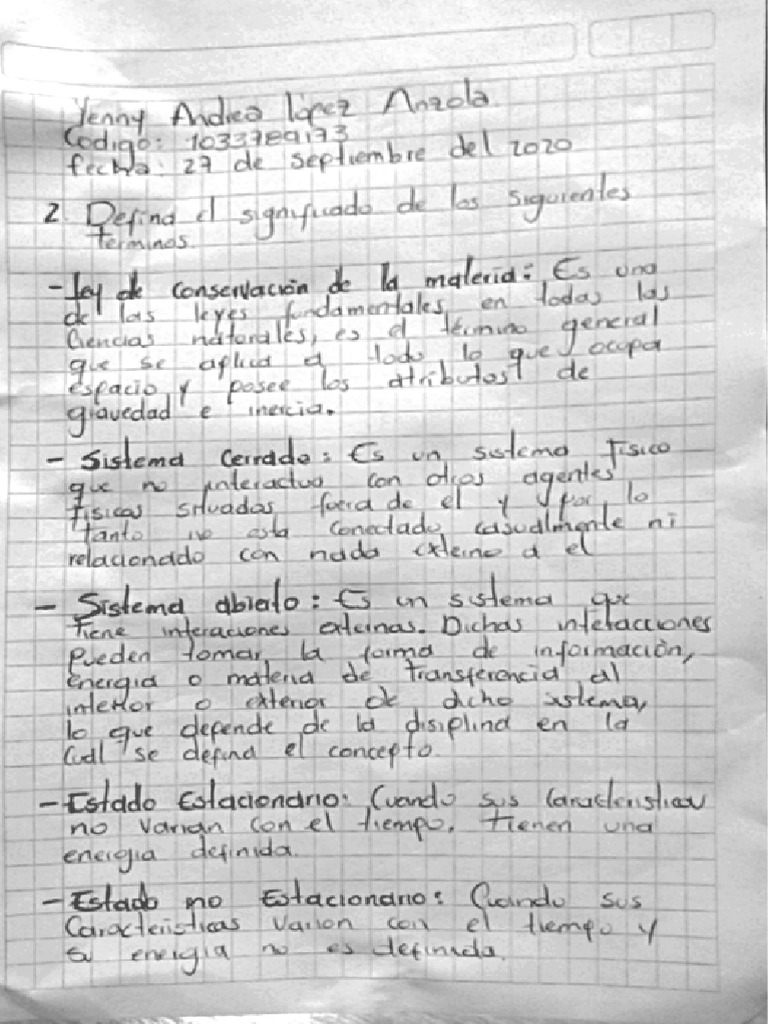 Yenny Andrea López Anzola
Codigo: 1033789173
fecha: 27 de septiembre del 2020
2. Defina el significado de los siguientes
terminos
- Ley de conservación de la materia: Es una
de las leyes fundamentales en todas las
Ciencias naturales, es el término general
que se aplica a todo lo que ocupa
espacio y posee los atributos de
gravedad e inercia.
- Sistema Cerrado: Es un sistema fisico
que no interactua con otros agentes
fisicos situadas fuera de el y por lo
tanto no esta conectado casualmente ni
relacionado con nada externo a el
- Sistema abierto: Es un sistema que
tiene interaciones externas. Dichas interacciones
pueden tomar la forma de información,
energia o materia de transferencia al
interior o exterior de dicho sistema,
lo que depende de la disiplina en la
cual se defina el concepto.
- Estado Estacionario: Cuando sus caracteristicas
no varian con el tiempo, tienen una
energia definida.
- Estado no Estacionario: Cuando sus
Caracteristicas varian con el tiempo y
su energia no es definida.